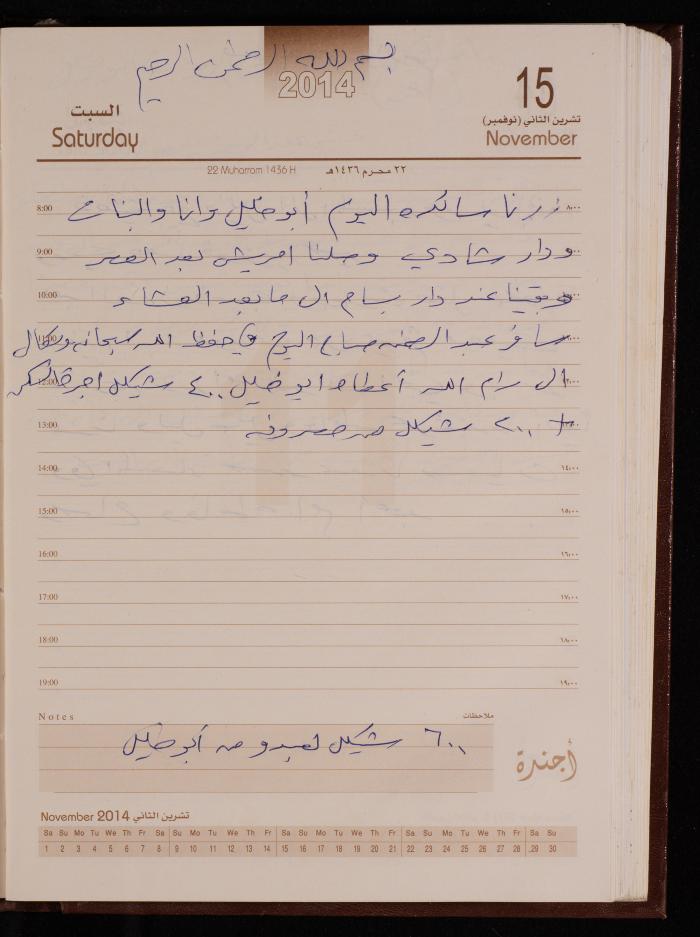 بسم الله الرحمن الرحيم
2014
السبت
Saturday
15
تشرين الثاني (نوفمبر)
November
22 Muharram 1436 H
٢٢ محرم ١٤٣٦هـ
8:00 زرنا سائده اليوم أبو خليل وانا والبنات ٨:٠٠
9:00 ودار شادي وصلنا امريش بعد العصر
10:00 وبقينا عند دار بسام ال ما بعد العشاء
سافر عبد الرحمن صباح اليوم في حفظ الله سبحانه وتعالى
ال رام الله أعطاه ابو خليل ٤٠٠ شيكل اجرة السكن
13:00 + ٢٠٠ شيكل مصروفه
14:00 ١٤:٠٠
15:00 ١٥:٠٠
16:00 ١٦:٠٠
17:00 ١٧:٠٠
18:00 ١٨:٠٠
19:00 ١٩:٠٠
Notes ملاحظات
٦٠٠ شيكل لعبدو من أبو خليل
أجندة
November 2014 تشرين الثاني
Sa Su Mo Tu We Th Fr Sa Su Mo Tu We Th Fr Sa Su Mo Tu We Th Fr Sa Su Mo Tu We Th Fr Sa Su
1 2 3 4 5 6 7 8 9 10 11 12 13 14 15 16 17 18 19 20 21 22 23 24 25 26 27 28 29 30